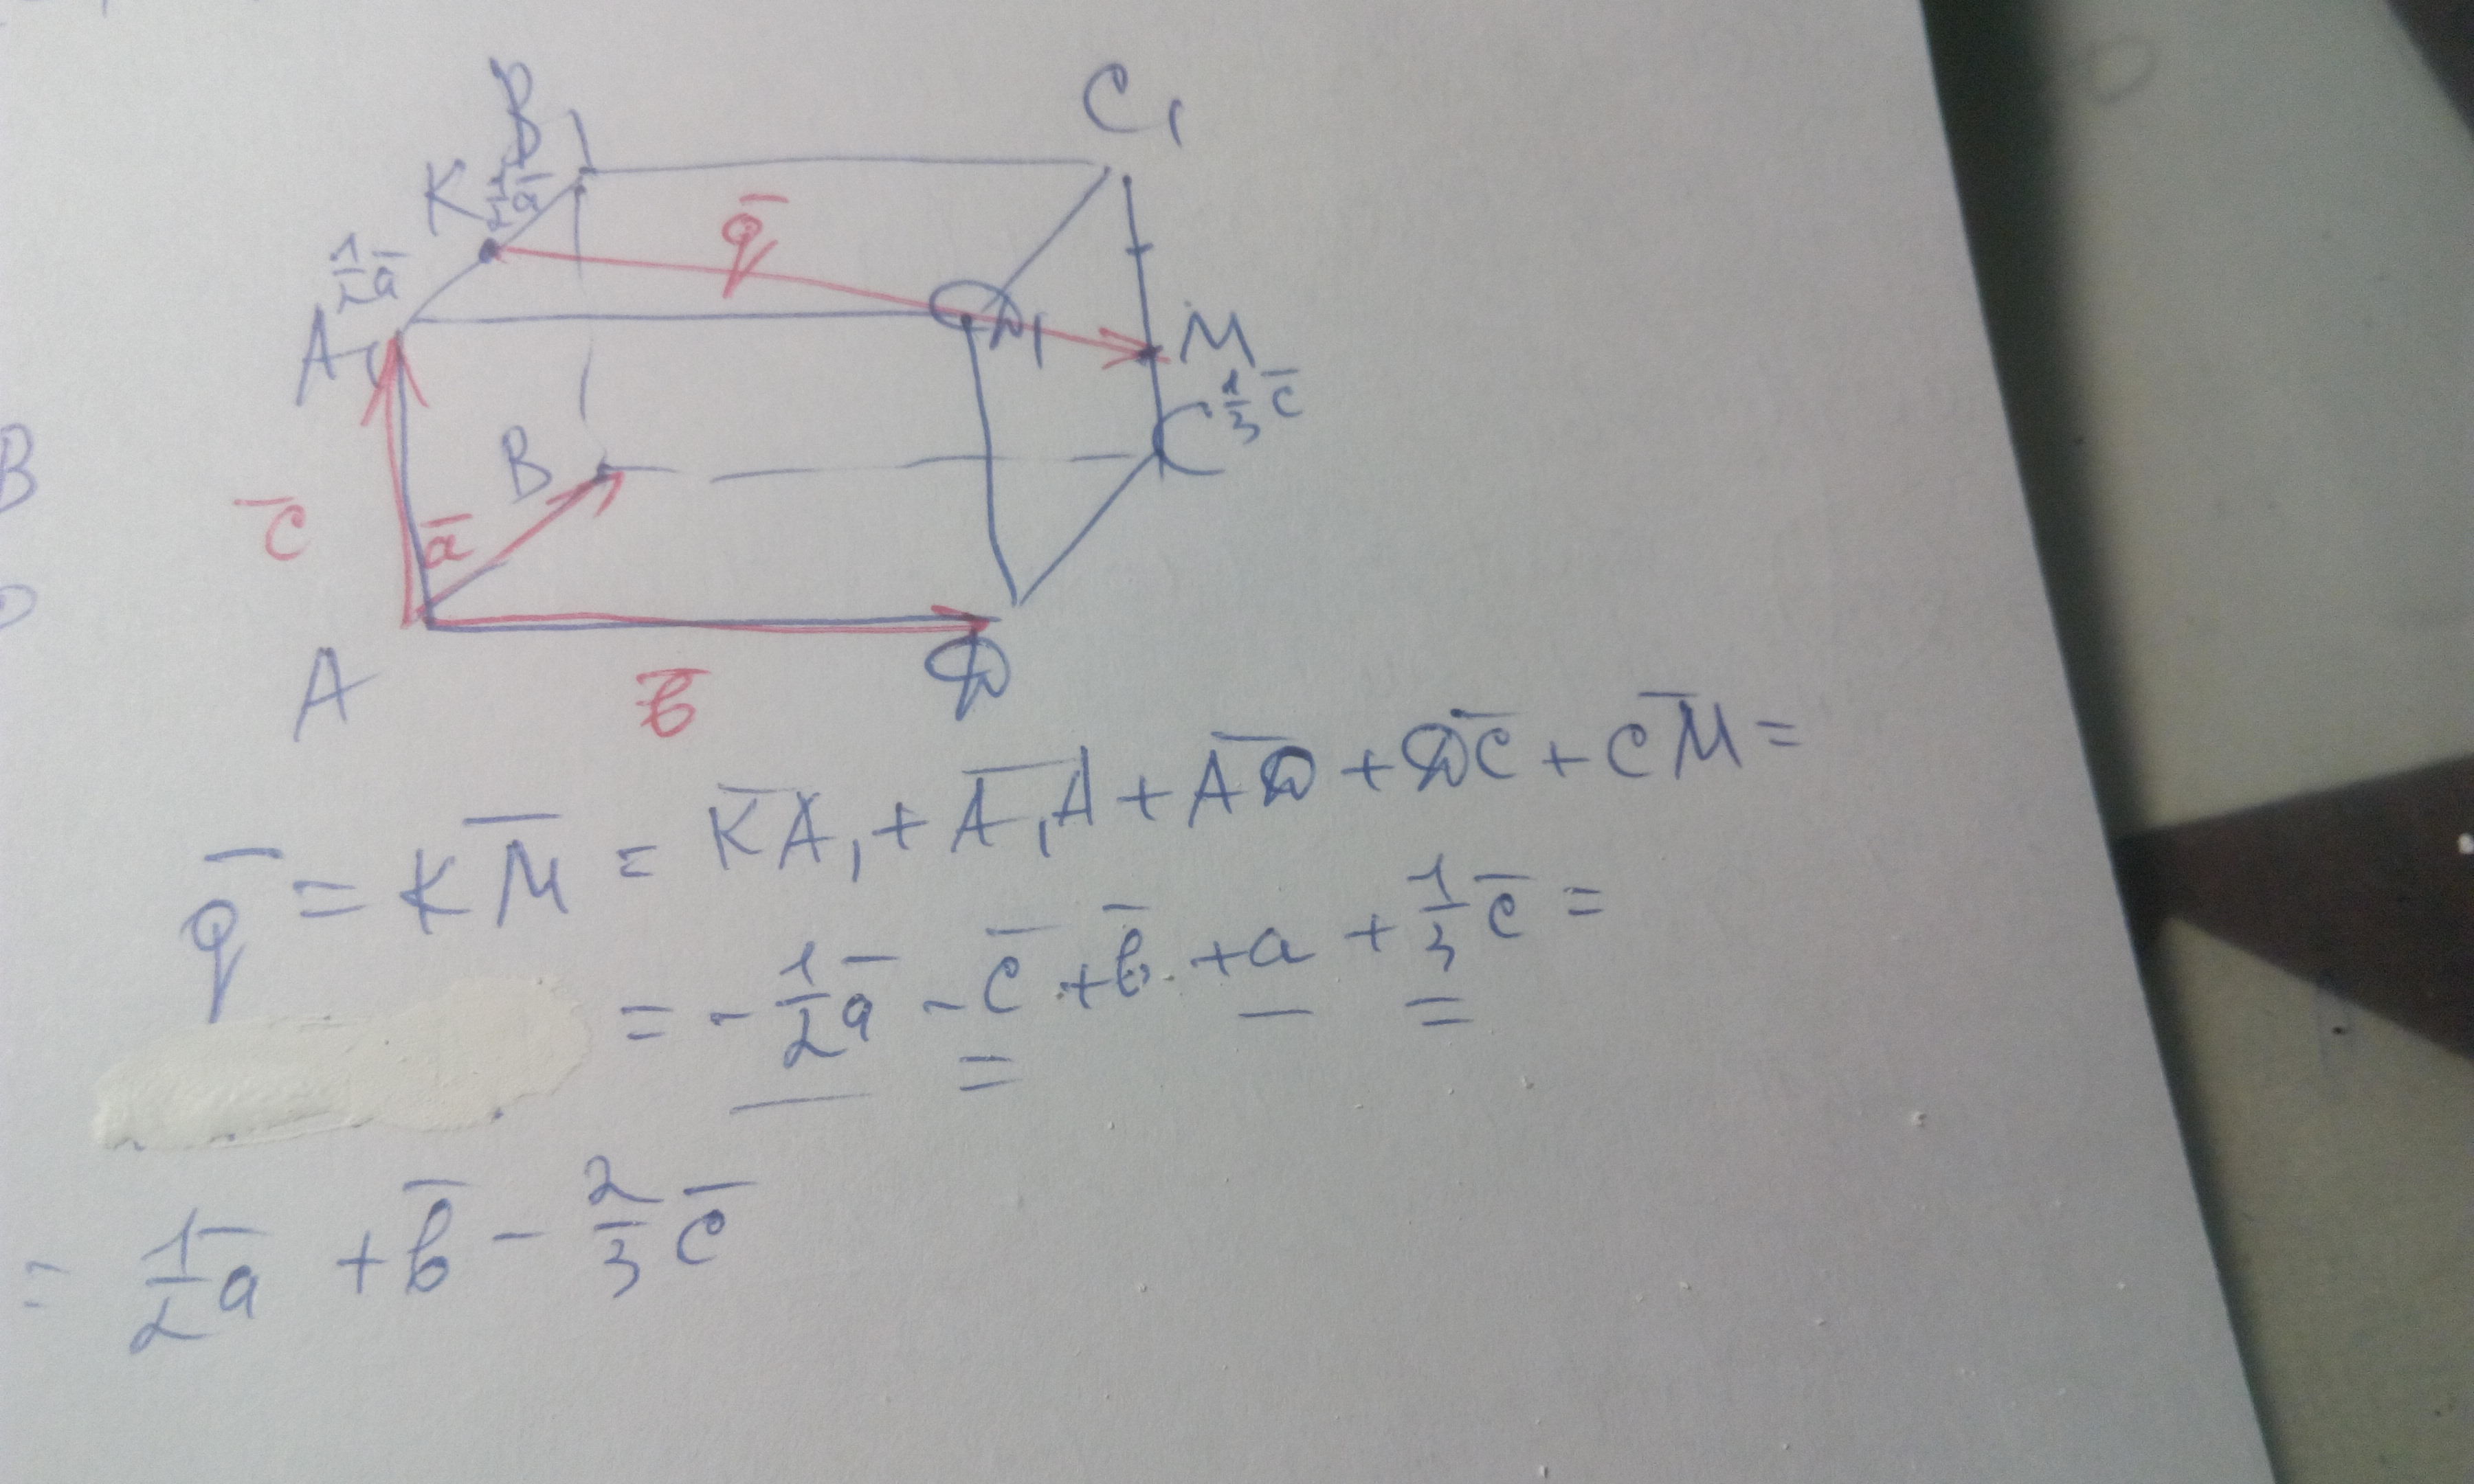 B₁
C₁
K ½a̅
q̅
½a̅
A₁
D₁
M
⅓c̅
C
B
B
c̅
a̅
A
b̅
D
q̅ = KM̅ = K̅A₁ + A̅₁A̅ + AD̅ + DC̅ + CM̅ =
= - ½a̅ - c̅ + b̅ + a + ⅓c̅ =
= ½a̅ + b̅ - ⅔c̅